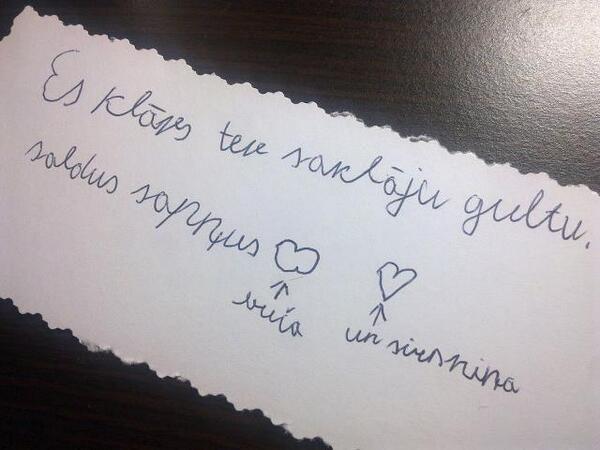 Es klāps tev saklāju gultu.
saldus sapņus
↑ ↑
buča un sirsniņa